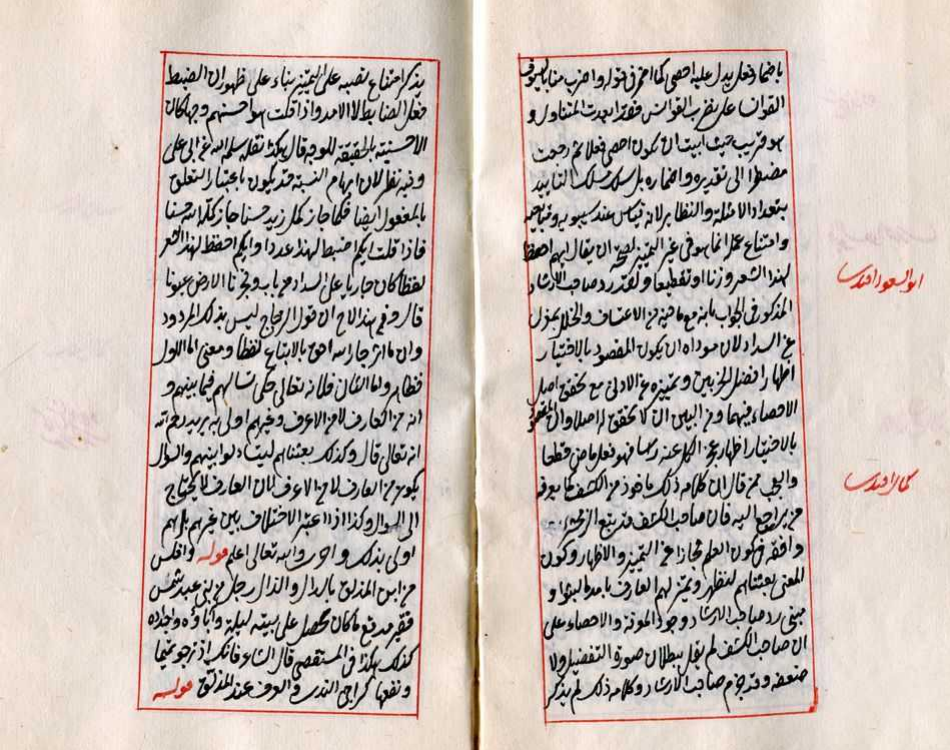 باضمار فعل يدل عليه احصى كما اضمر في قوله واضرب منا بالسيوف
القوانسا على يضرب القوانس فقد ابعدت المتناول و
هو قريب حيث ابيت ان يكون احصى فعلا ثم رجعت
مضطرا الى تقديره واضماره بل سلك مسلك التاييد
بتعداد الامثلة والنظاير لانه قياس عند سيبويه
وامتناع عمل انما هو في غير التمييز لصحة ان يقال ايهم احفظ
لهذا الشعر وزنا او تقطيعا ولقد رد صاحب الارشاد
المذكور في الجواب بانه مع ما فيه من الاعتساف والخلل بمعزل
عن السداد لان موداه ان يكون المقصود بالاختبار
اظهار افضل الحزبين وتمييزه عن الادنى مع تحقق اصل
الاحصاء فيهما ومن البين ان لا تحقق له اصلا وان المقصود
بالاختبار اظهار عجز الكل عنه راسا فهو فعل ماض قطعا
والعجب من قال ان كلامه ذلك ماخوذ من الكشف كما يعرفه
من يراجع اليه فان صاحب الكشف قد يتبع الزمخشري
وافقه في كون العلم مجازا عن التمييز والاظهار وكون
المعنى بعثناهم لنظهر ونميز لهم العارف بامد ما لبثوا و
مبنى رد صاحب الارشاد وجود المعرفة والاحصاء على
ان صاحب الكشف لم يقل ببطلان صورة التفضيل ولا
ضعفه وقد جزم صاحب الارشاد وكلامه ذلك لم يذكر
ابو السعود افندى
كمال افندى
يذكر امتناع نصبه على التمييز بناء على ظهور ان الضبط
فعل الضابط لا الامد واذا قلت هو احسنهم وجها كان
الاحسنية بالحقيقة للوجه قال هكذا نقله سلمه الله عن ابي علي
وفيه نظر لان ابهام النسبة قد يكون باعتبار التعلق
بالمفعول ايضا فكما جاز كمل زيد حسنا جاز كمل الله حسنا
فاذا قلت ايكم اضبط لهذا عددا وايكم احفظ لهذا الشعر
لفظا كان جاريا على السداد من باب وفجرنا الارض عيونا
قال وفهم هذا لاح ان قول الزجاج ليس بذلك المردود
وان ما اثر جار الله احق بالاتباع لفظا ومعنى اما الاول
فظاهر واما الثاني فلانه تعالى حكى تسالهم فيما بينهم و
انه من العارف لا من الاعرف وغيرهم اولى به يريد رحمه الله
انه تعالى قال وكذلك بعثناهم ليتساءلوا بينهم والسؤال
يكون من العارف لا من الاعرف لان العارف لا يحتاج
الى السؤال وكذا اذا اعتبر الاختلاف بين غيرهم بل هم
اولى بذلك واحرى والله تعالى اعلم قوله وافلس
من ابن المذلق بالدال والذال رجل من بني عبد شمس
فقير مدقع ما كان يحصل على بيت ليلة وآباؤه واجداده
كذلك هكذا في المستقصى قال الشاعر فانك اذ ترجو تميما
ونفعها كراجي الندى والعرف عند المذلق قوله